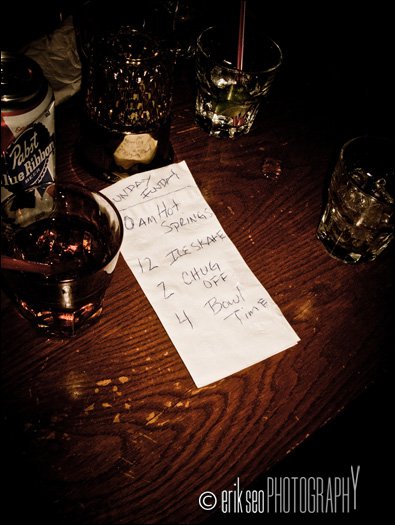 Pabst
Blue Ribbon
SUNDAY
FUNDAY
0 AM HOT
SPRINGS
12 ICE SKATE
2 CHUG
OFF
4 BOWL
TIME
© erik seo PHOTOGRAPHY